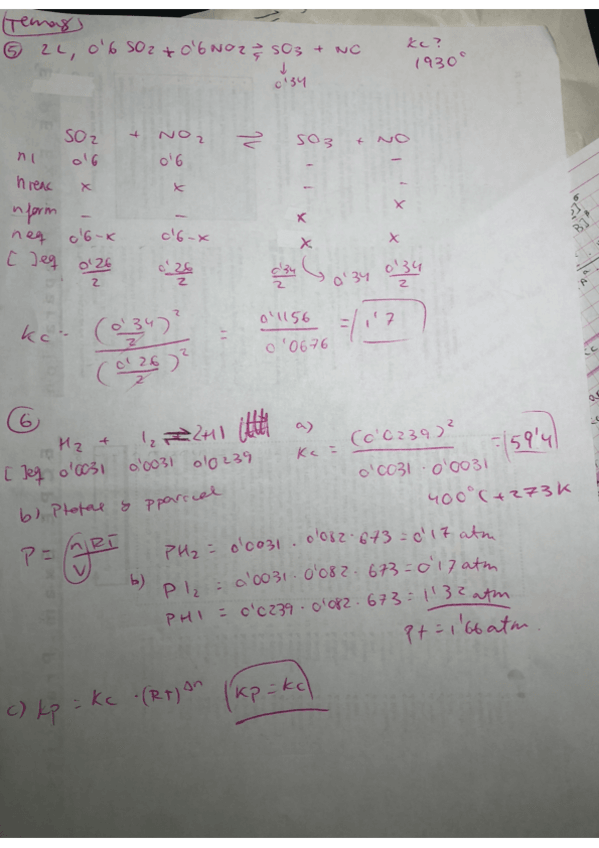 (Tema 8)
⑤ 2L, 0'6 SO2 + 0'6 NO2 ⇌ SO3 + NO Kc?
↓ 1930°
0'34
SO2 + NO2 ⇌ SO3 + NO
n i 0'6 0'6 - -
n reac x x - -
n form - - x x
n eq 0'6-x 0'6-x x x
[ ]eq 0'26/2 0'26/2 0'34/2 0'34 0'34/2
Kc = (0'34/2)² / (0'26/2)² = 0'1156 / 0'0676 = 1'7
⑥ H2 + I2 ⇌ 2HI a)
[ ]eq 0'0031 0'0031 0'0239 Kc = (0'0239)² / 0'0031 · 0'0031 = 59'4
400°C + 273 K
b) Ptotal y pparcial
P = nRT / V PH2 = 0'0031 · 0'082 · 673 = 0'17 atm
b) PI2 = 0'0031 · 0'082 · 673 = 0'17 atm
PHI = 0'0239 · 0'082 · 673 = 1'32 atm
Pt = 1'66 atm.
c) Kp = Kc · (RT)^Δn Kp = Kc